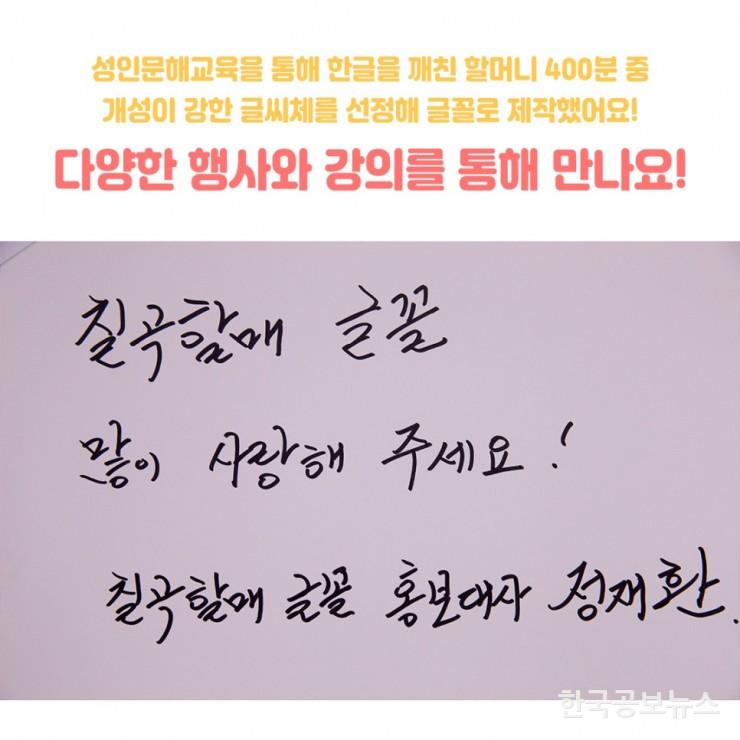 성인문해교육을 통해 한글을 깨친 할머니 400분 중
개성이 강한 글씨체를 선정해 글꼴로 제작했어요!
다양한 행사와 강의를 통해 만나요!
칠곡할매 글꼴
많이 사랑해 주세요!
칠곡할매 글꼴 홍보대사 정재환.
한국공보뉴스